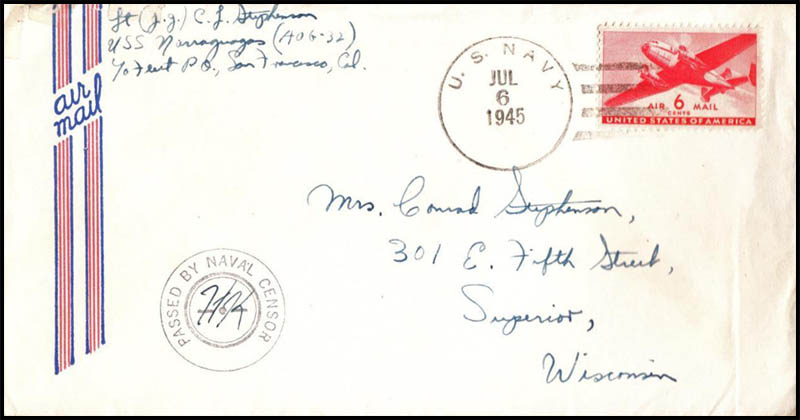 Lt (j.g.) C. L. Stephenson
USS Narraguagas (AOG-32)
c/o Fleet P.O., San Francisco, Cal.
air
mail
U. S. NAVY
JUL
6
1945
AIR 6 MAIL
CENTS
UNITED STATES OF AMERICA
Mrs. Conrad Stephenson,
301 E. Fifth Street,
Superior,
Wisconsin
PASSED BY NAVAL CENSOR